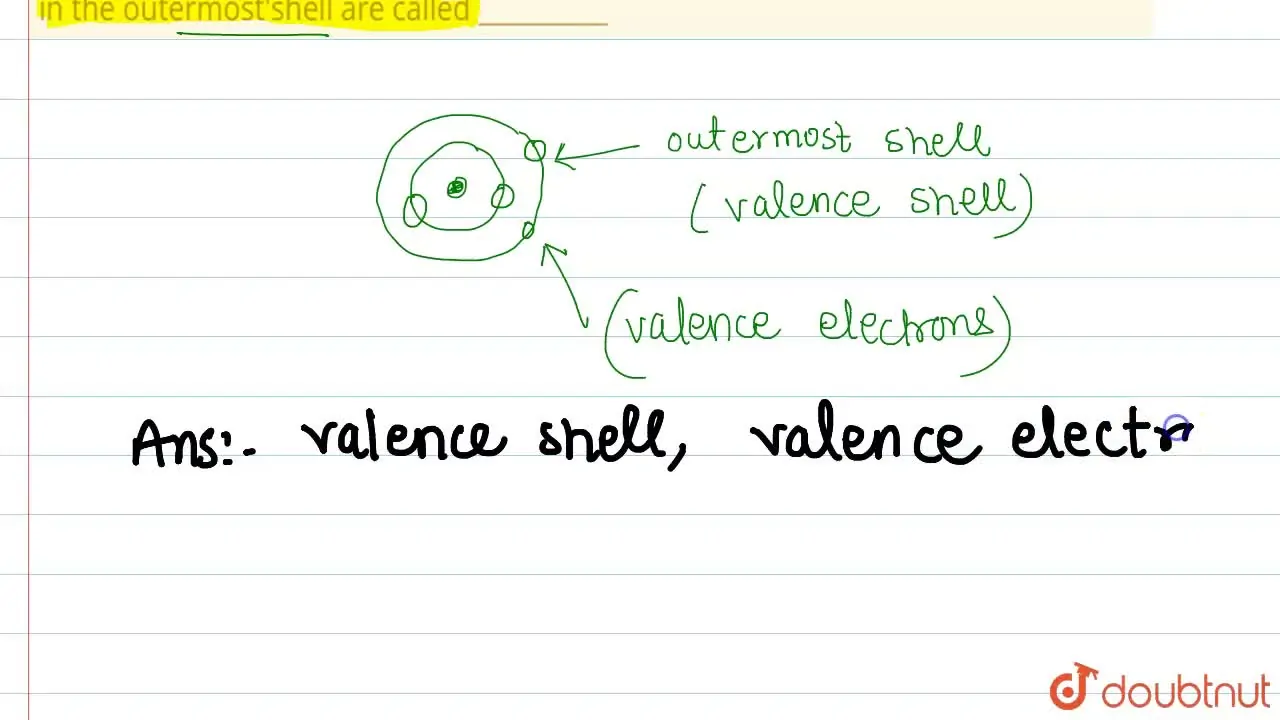 in the outermost'shell are called
outermost shell
(valence shell)
(valence electrons)
Ans:- valence shell, valence electr
doubtnut